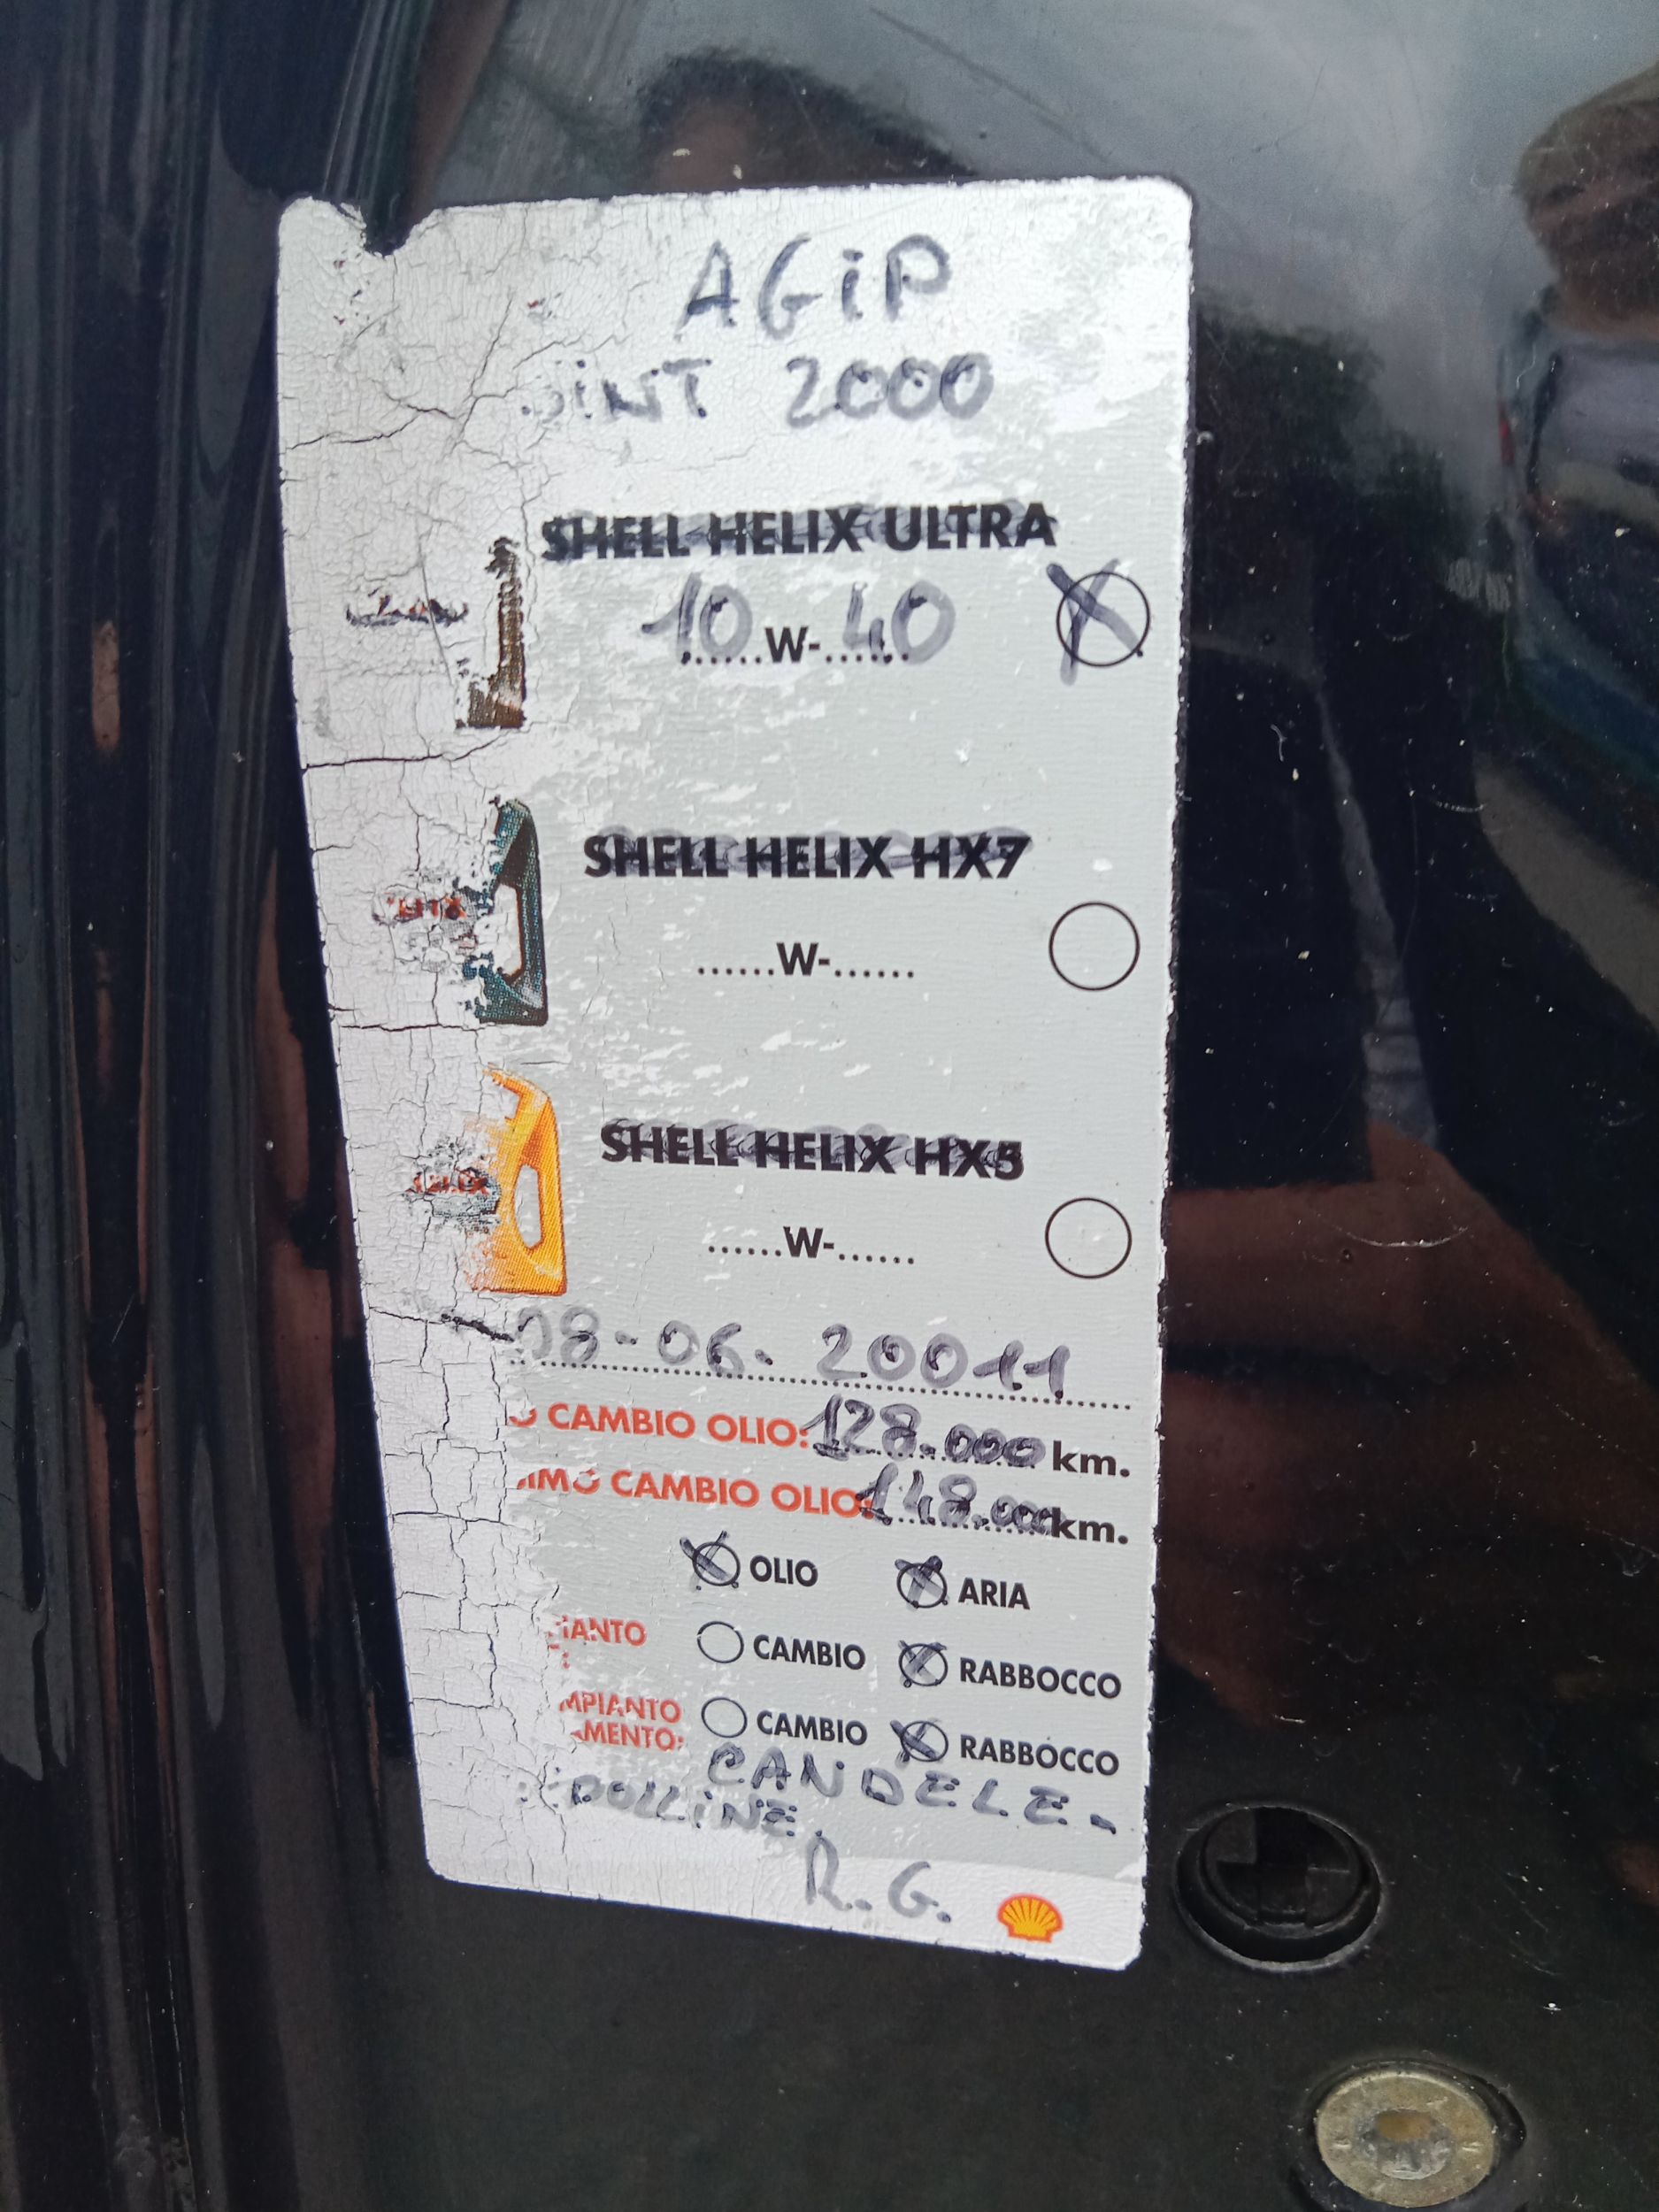 AGiP
SiNT 2000
SHELL HELIX ULTRA
10 W- 40
SHELL HELIX HX7
......W-......
SHELL HELIX HX5
......W-......
08-06. 20011
O CAMBIO OLIO: 128.000 km.
IMO CAMBIO OLIO: 148.000 km.
OLIO ARIA
IANTO CAMBIO RABBOCCO
MPIANTO
AMENTO: CAMBIO RABBOCCO
CANDELE-
POLLiNE.
R.G.